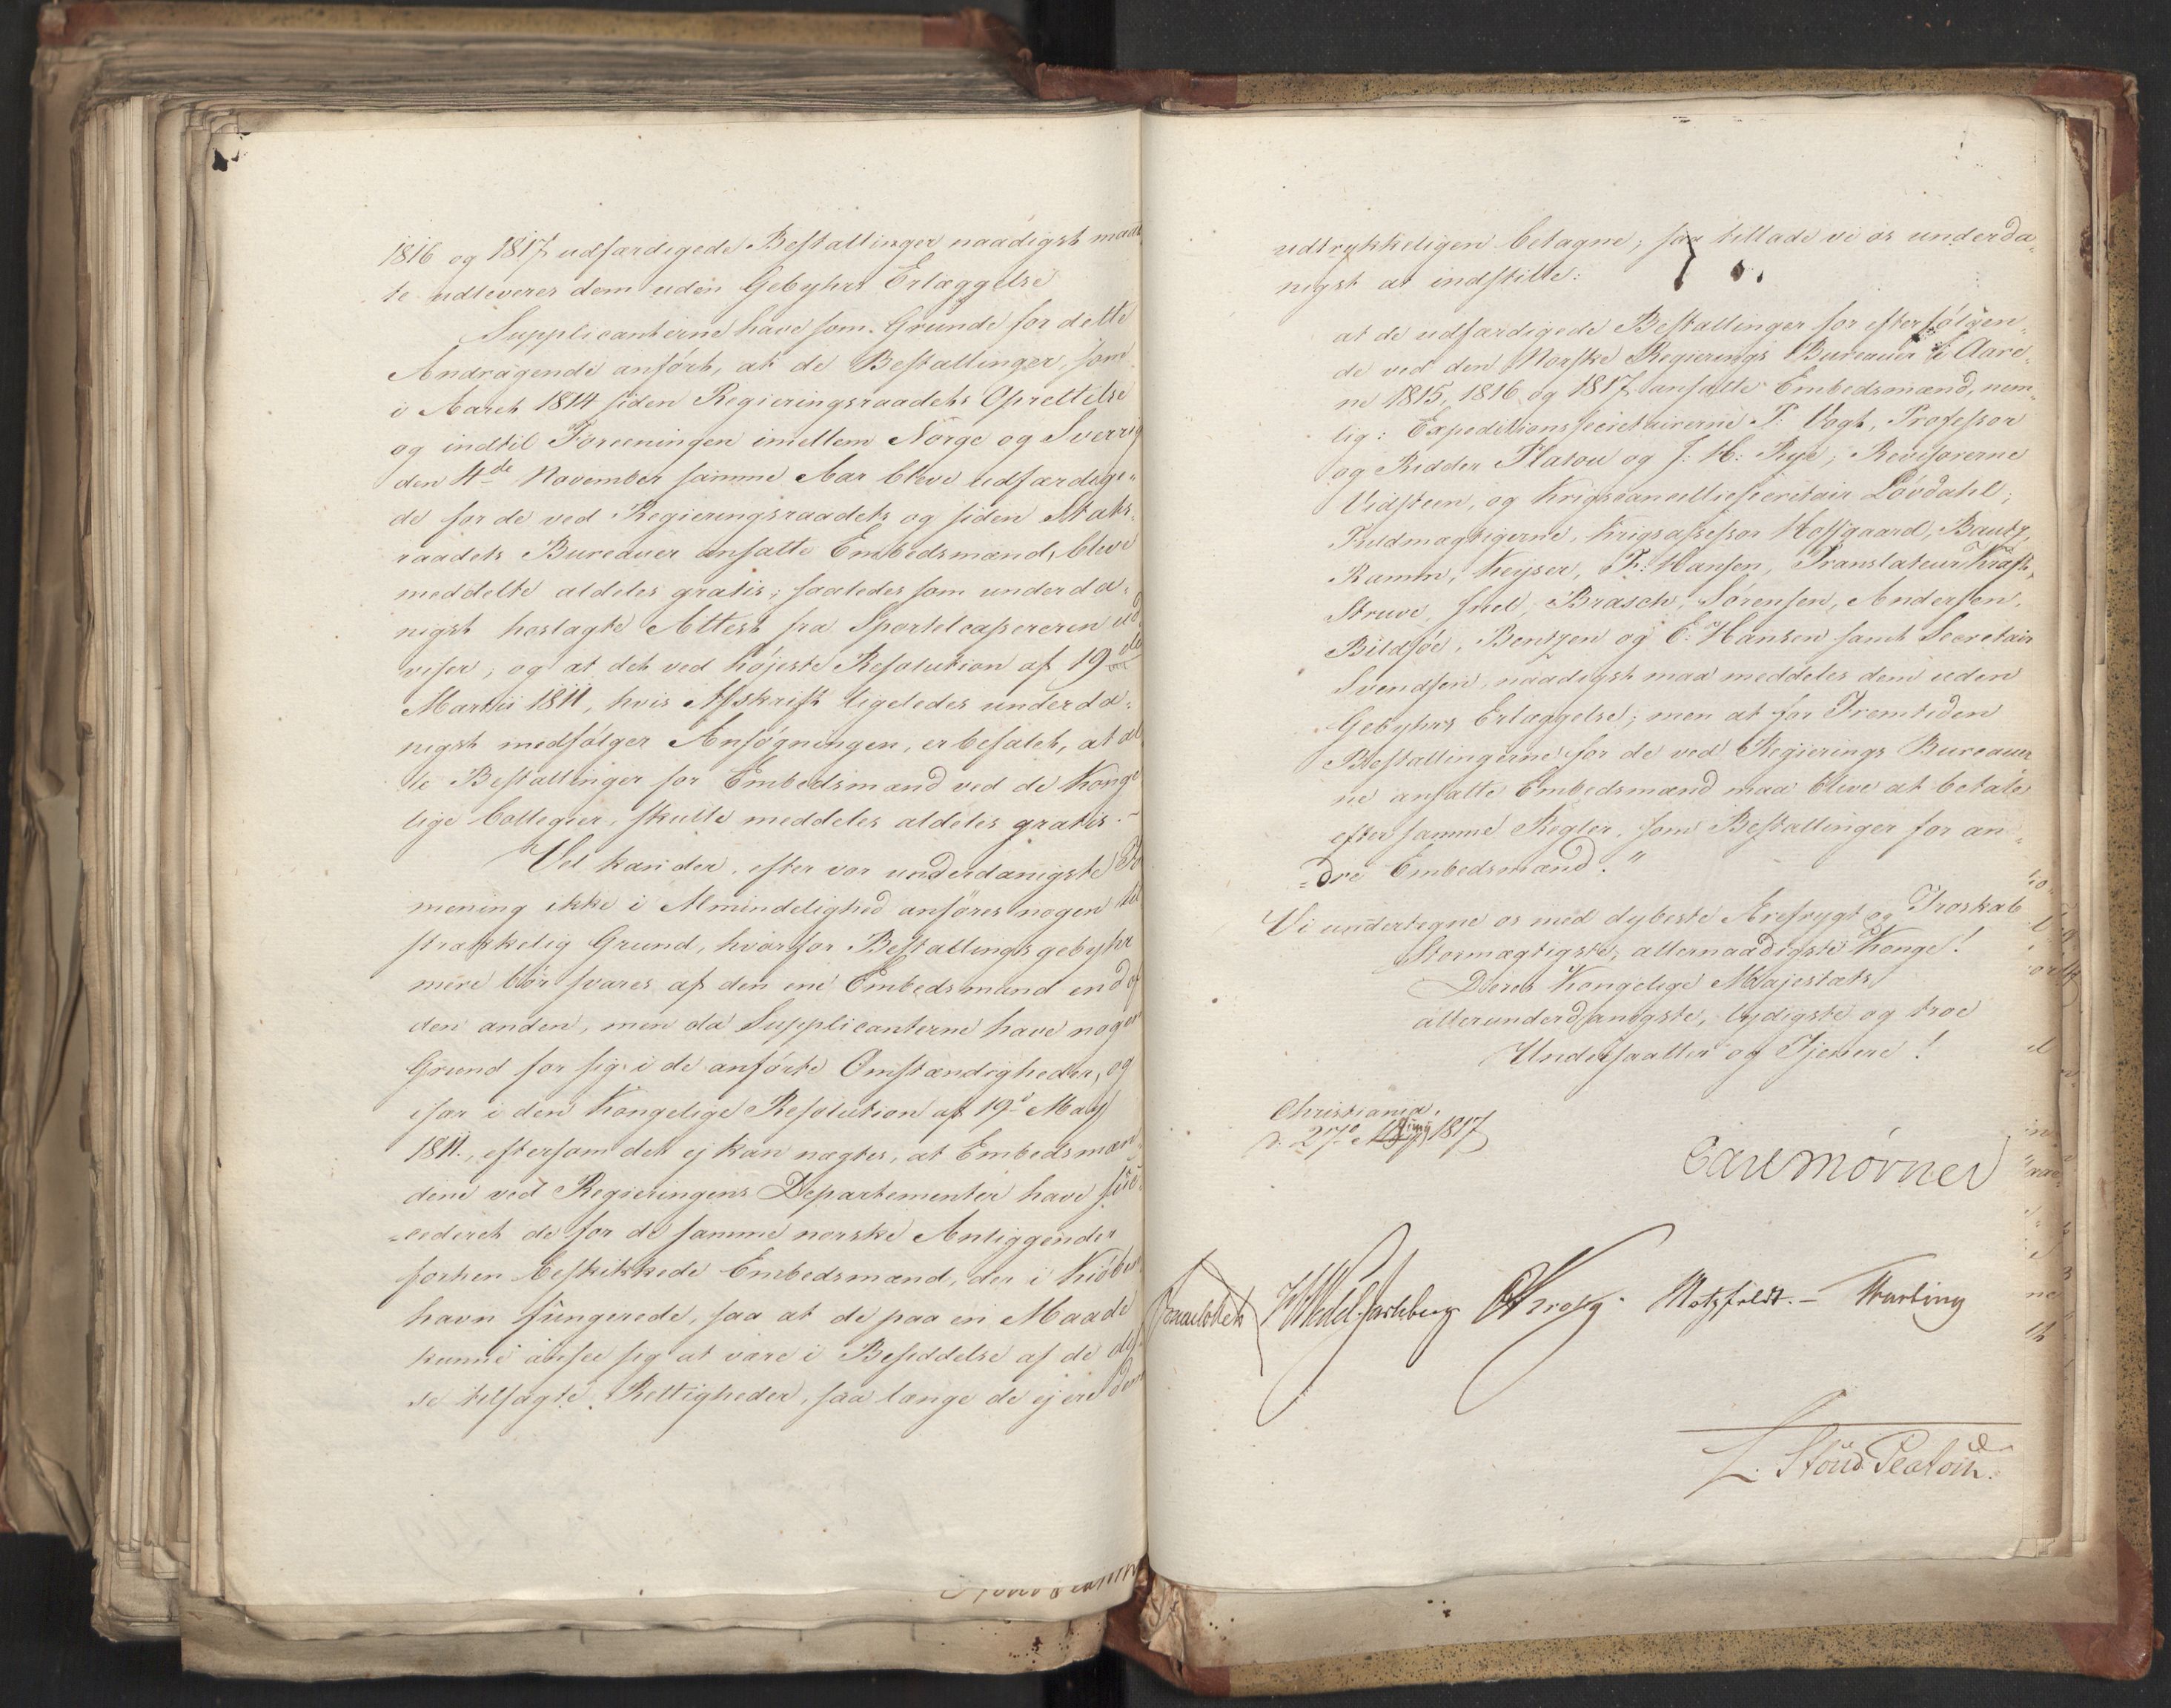 1816 og 1817 udfærdigede Bestallinger naadigst maat
te udleveres dem uden Gebyhrs Erlæggelse
Supplicanterne have som Grunde for dette
Andragende anført, at de Bestallinger, som
i Aaret 1814 siden Regieringsraadets Oprettelse
og indtil Foreeningen imellem Norge og Sverrig
den 4de November samme Aar bleve udfærdige-
de for de ved Regieringsraadets og siden Stats-
raadets Bureauer ansatte Embedsmænd, bleve
meddelte aldeles gratis, saaledes som underda-
nigst hoslagte Attest fra Sportelcasereren ud
viser, og at det ved høieste Resolution af 19de
Martii 1811, hvis Afskrift ligeledes underda-
nigst medfølger Ansøgningen, er befalet, at al
le Bestallinger for Embedsmænd ved de Konge
lige Collegier, skulle meddeles aldeles gratis.-
Vel kan der, efter vor underdanigste
mening ikke i Almindelighed anføres nogen til
strækkelig Grund, hvorfor Bestallingsgebyhr
mere bør svares af den ene Embedsmand end af
den anden, men da Supplicanterne have nogen
Grund for sig i de anførte Omstændigheder, og
især i den Kongelige Resolution af 19d May
1811, eftersom det ej kan nægtes, at Embedsmæn
dene ved Regieringens Departementer have suc-
-cederet de for de samme norske Anliggender
forhen beskikkede Embedsmænd, der i Kiøben
havn fungerede, saa at de paa en Maade
kunne ansee sig at være i Besiddelse af de
se tilsagte Rettigheder, saa længe de ej ere dem
udtrykkeligen betagne, saa tillade vi os underda-
nigst at indstille:
at de udfærdigede Bestallinger for efterfølgen-
de ved den Norske Regierings Bureauer i Aare-
ne 1815, 1816 og 1817 ansatte Embedsmænd, nem-
lig: Expeditionssecretairerne P. Vogt, Professor
og Ridder Platou og J: H: Rye; Revisorerne
Vidsteen, og Krigscancelliesecretair Løvdahl;
Fuldmægtigerne, Krigsassessor Hoffgaard, Bautz,
Ramm, Keyser, F: Hansen, Translateur Kraft,
Struve, Juel, Brasch, Sørensen, Andersen,
Bildsøe, Bentzen og C: Hansen samt Secretair
Svendsen, naadigst maa meddeles dem uden
Gebyhrs Erlæggelse; men at for Fremtiden
Bestallingerne for de ved Regierings Bureauer
ne ansatte Embedsmænd maa blive at betale
efter samme Regler, som Bestallinger for an-
-dre Embedsmænd."
Vi undertegne os med dybeste Ærefrygt og Troskab
Stormægtigste, allernaadigste Konge!
Deres Kongelige Majestæts
allerunderdanigste, lydigste og troe
Undersaatter og Tjenere!
Christiania,
d. 27d 1817
Carl Mörner
Sommerhielm HWedel-Jarlsberg CKrogh. Motzfeldt.-
L. Stoud Platou.